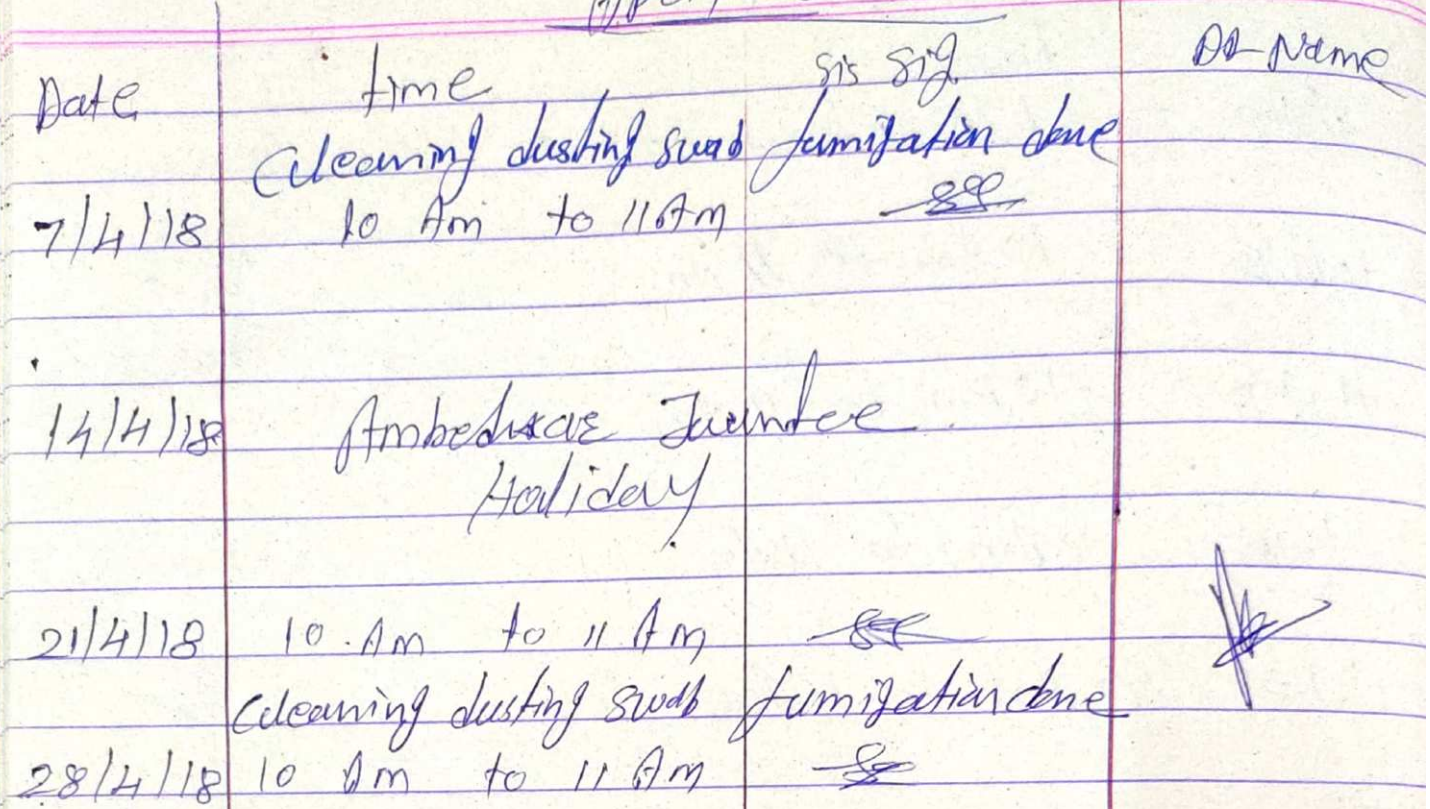 Date time sis sig Dr Name
Cleaning dusting swab fumigation done
7/4/18 10 Am to 11 Am
14/4/18 Ambedkar Juentee
Holiday
21/4/18 10 Am to 11 Am
Cleaning dusting swab fumigation done
28/4/18 10 Am to 11 Am